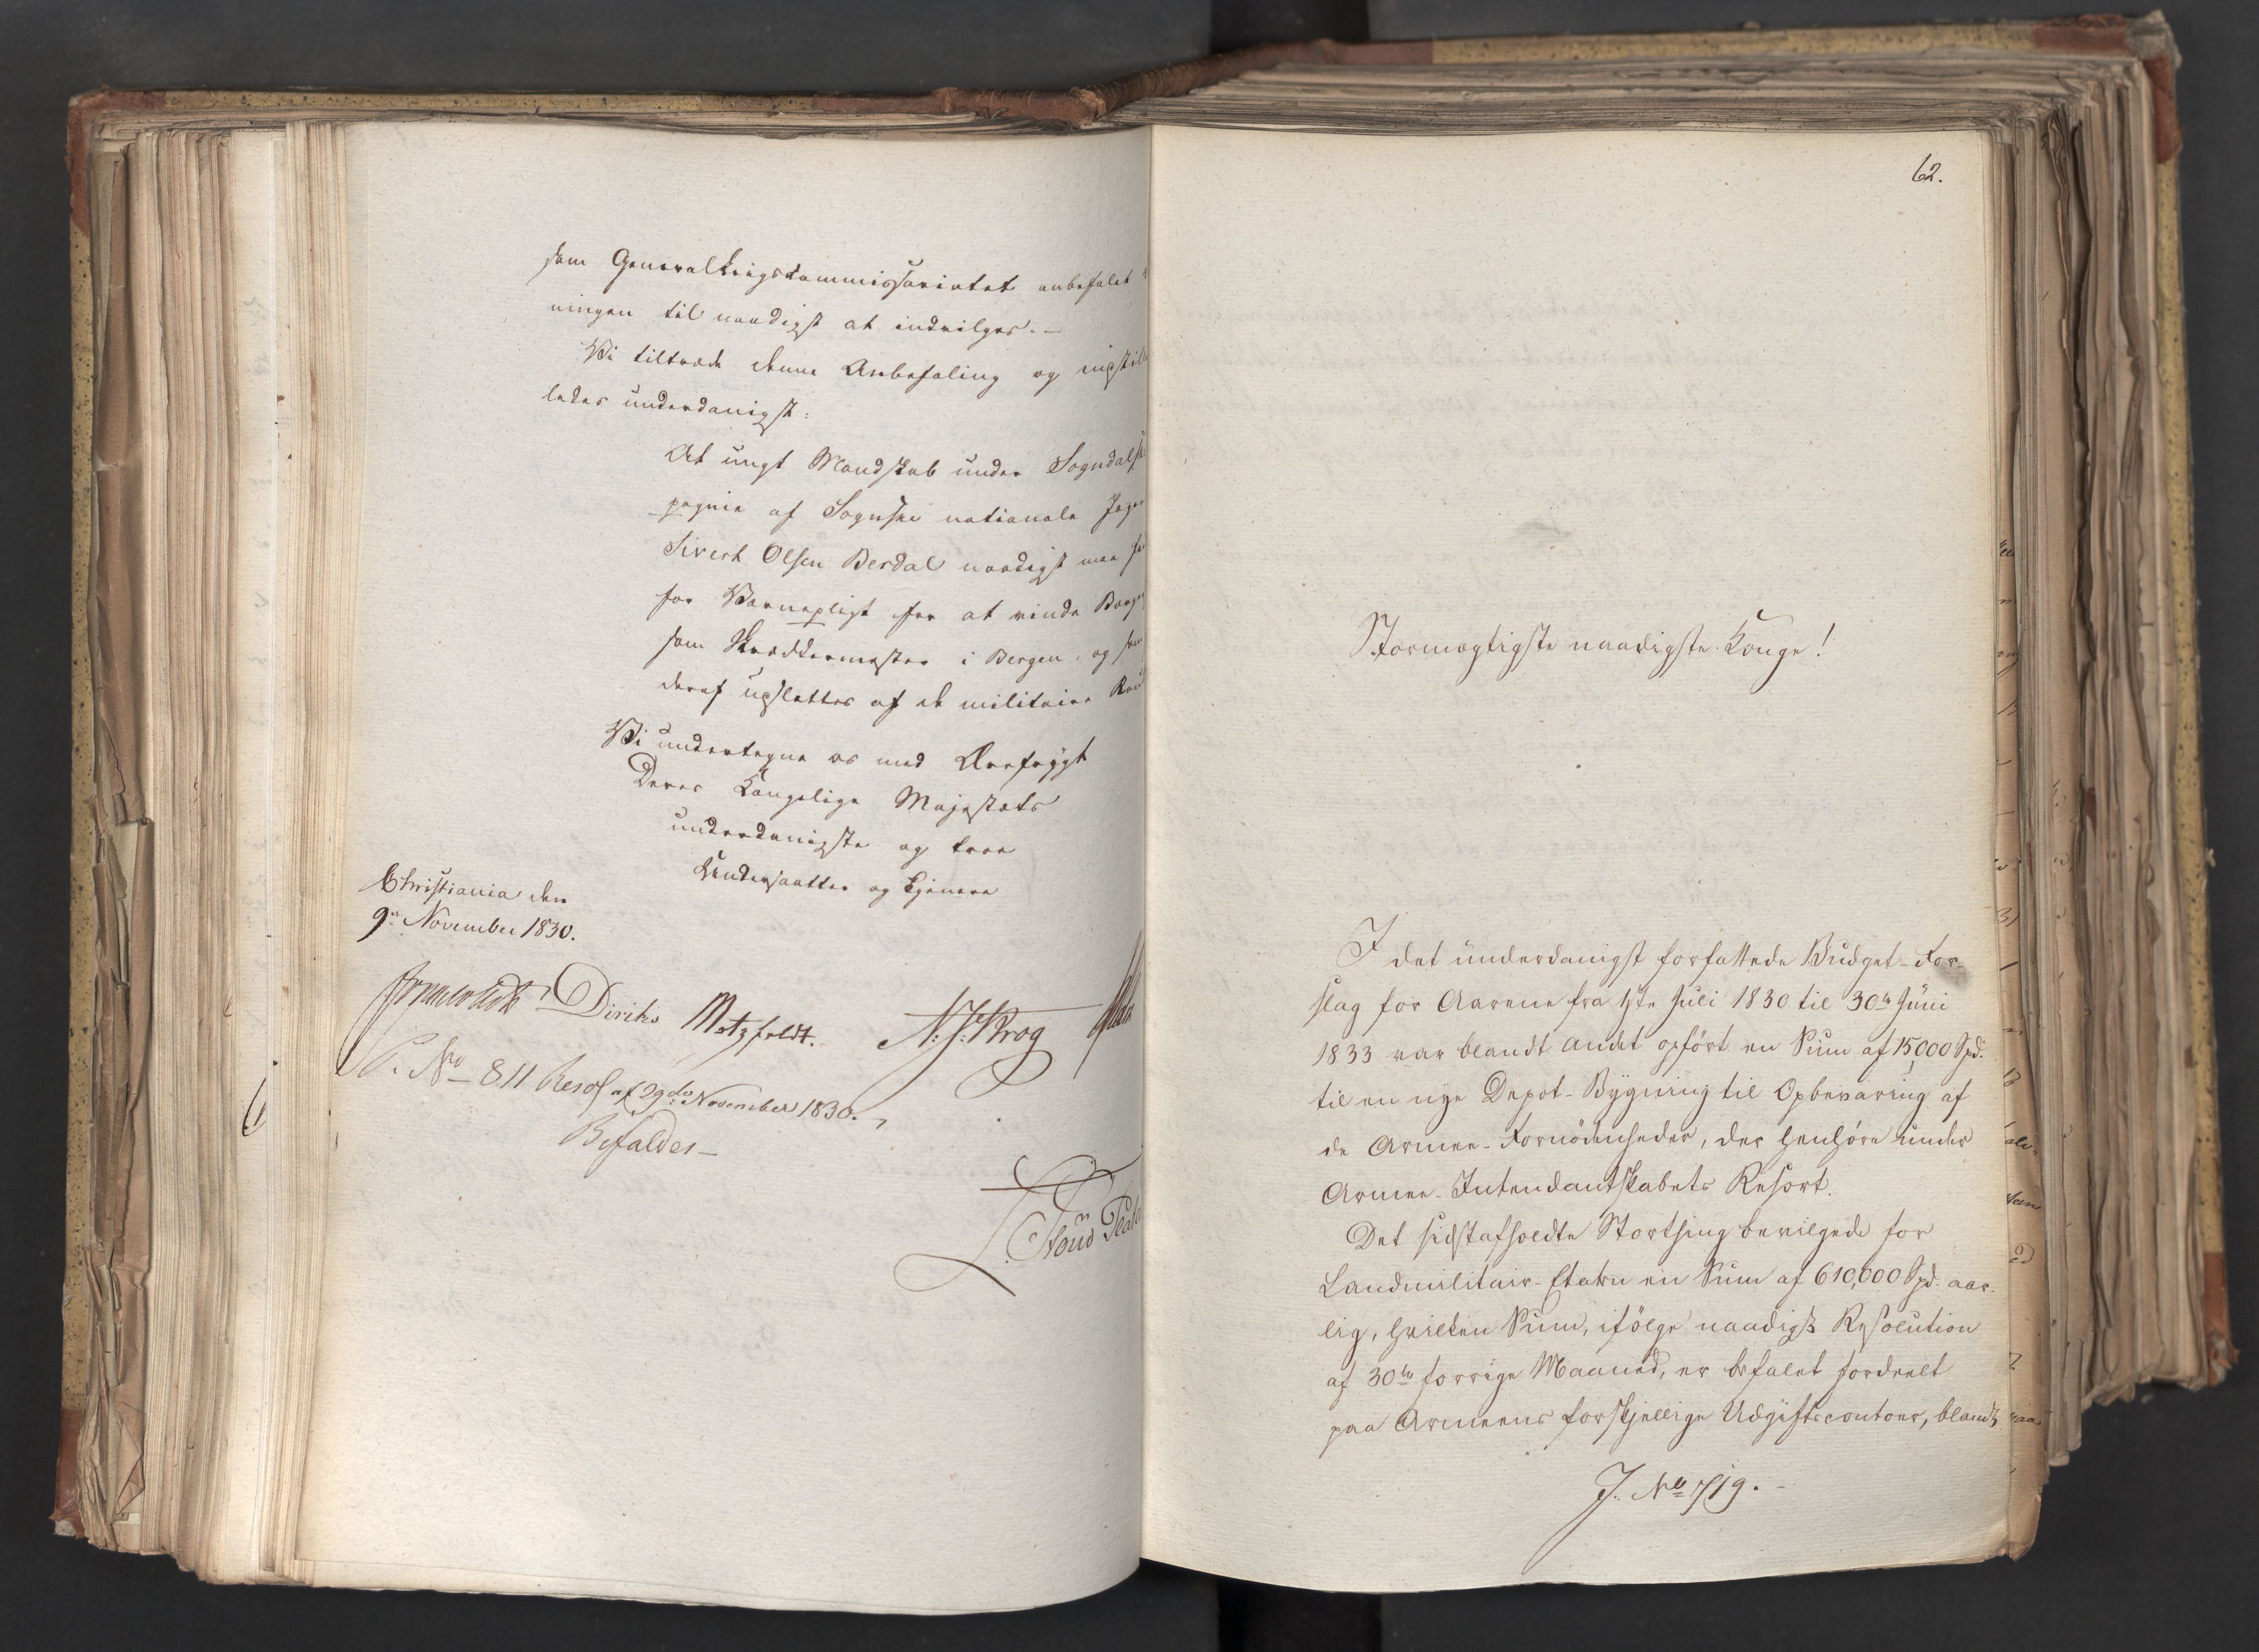 som Generalkrigskommissariatet anbefalet
ningen til naadigst at indvilges.-
Vi tiltræde denne Anbefaling og indstille
ledes underdanigst:
At ungt Mandskab under Sogndalske
pagnie af Sognske nationale Jæger
Sivert Olsen Berdal naadigst maa
for Værnepligt for at vinde Borger
som Skræddermester i Bergen, og som
deraf udslettes af de militaire
Vi undertegne os med Ærefrygt
Deres Kongelige Majestæts
underdanigste og troe
Undersaatter og Tjenere
Christiania den
9de November 1830.
Diriks Motzfeldt. N. J. Krog
P. No 811 Resol af 29de November 1830.
Bifaldes -
62.
Stormægtigste naadigste Konge!
I det underdanigst forfattede Budget-For-
slag for Aarene fra 1ste Juli 1830 til 30te Juni
1833 var blandt Andet opført en Sum af 15,000 Spd.
til en nye Depot-Bygning til Opbevaring af
de Armee-Fornødenheder, der henhøre under
Armee-Intendantskabets Resort.
Det sidstafholdte Storthing bevilgede for
Landmilitair-Etaten en Sum af 610,000 Spd. aar-
lig, hvilken Sum, ifølge naadigst Resolution
af 30te forrige Maaned, er befalet fordeelt
paa Armeens forskjellige Udgiftscontoer, blandt
J. No 719.-